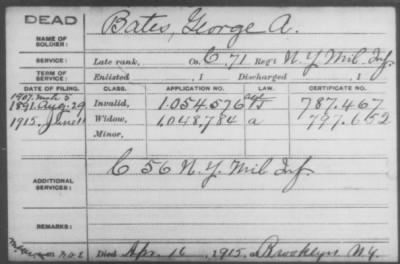 DEAD
Bates, George A.
NAME OF SOLDIER:
SERVICE:
Late rank, Co. C, 71 Reg't N.Y. Mil Inf.
TERM OF SERVICE:
Enlisted , 1 Discharged , 1
DATE OF FILING. CLASS. APPLICATION NO. LAW. CERTIFICATE NO.
1891. Aug. 29 Invalid, 1.054.576 787.467
1915. June 11 Widow, 1,048,784 a 797.652
Minor,
ADDITIONAL SERVICES:
C 56 N.Y. Mil Inf
REMARKS:
Died Apr. 16, 1915. at Brooklyn N.Y.